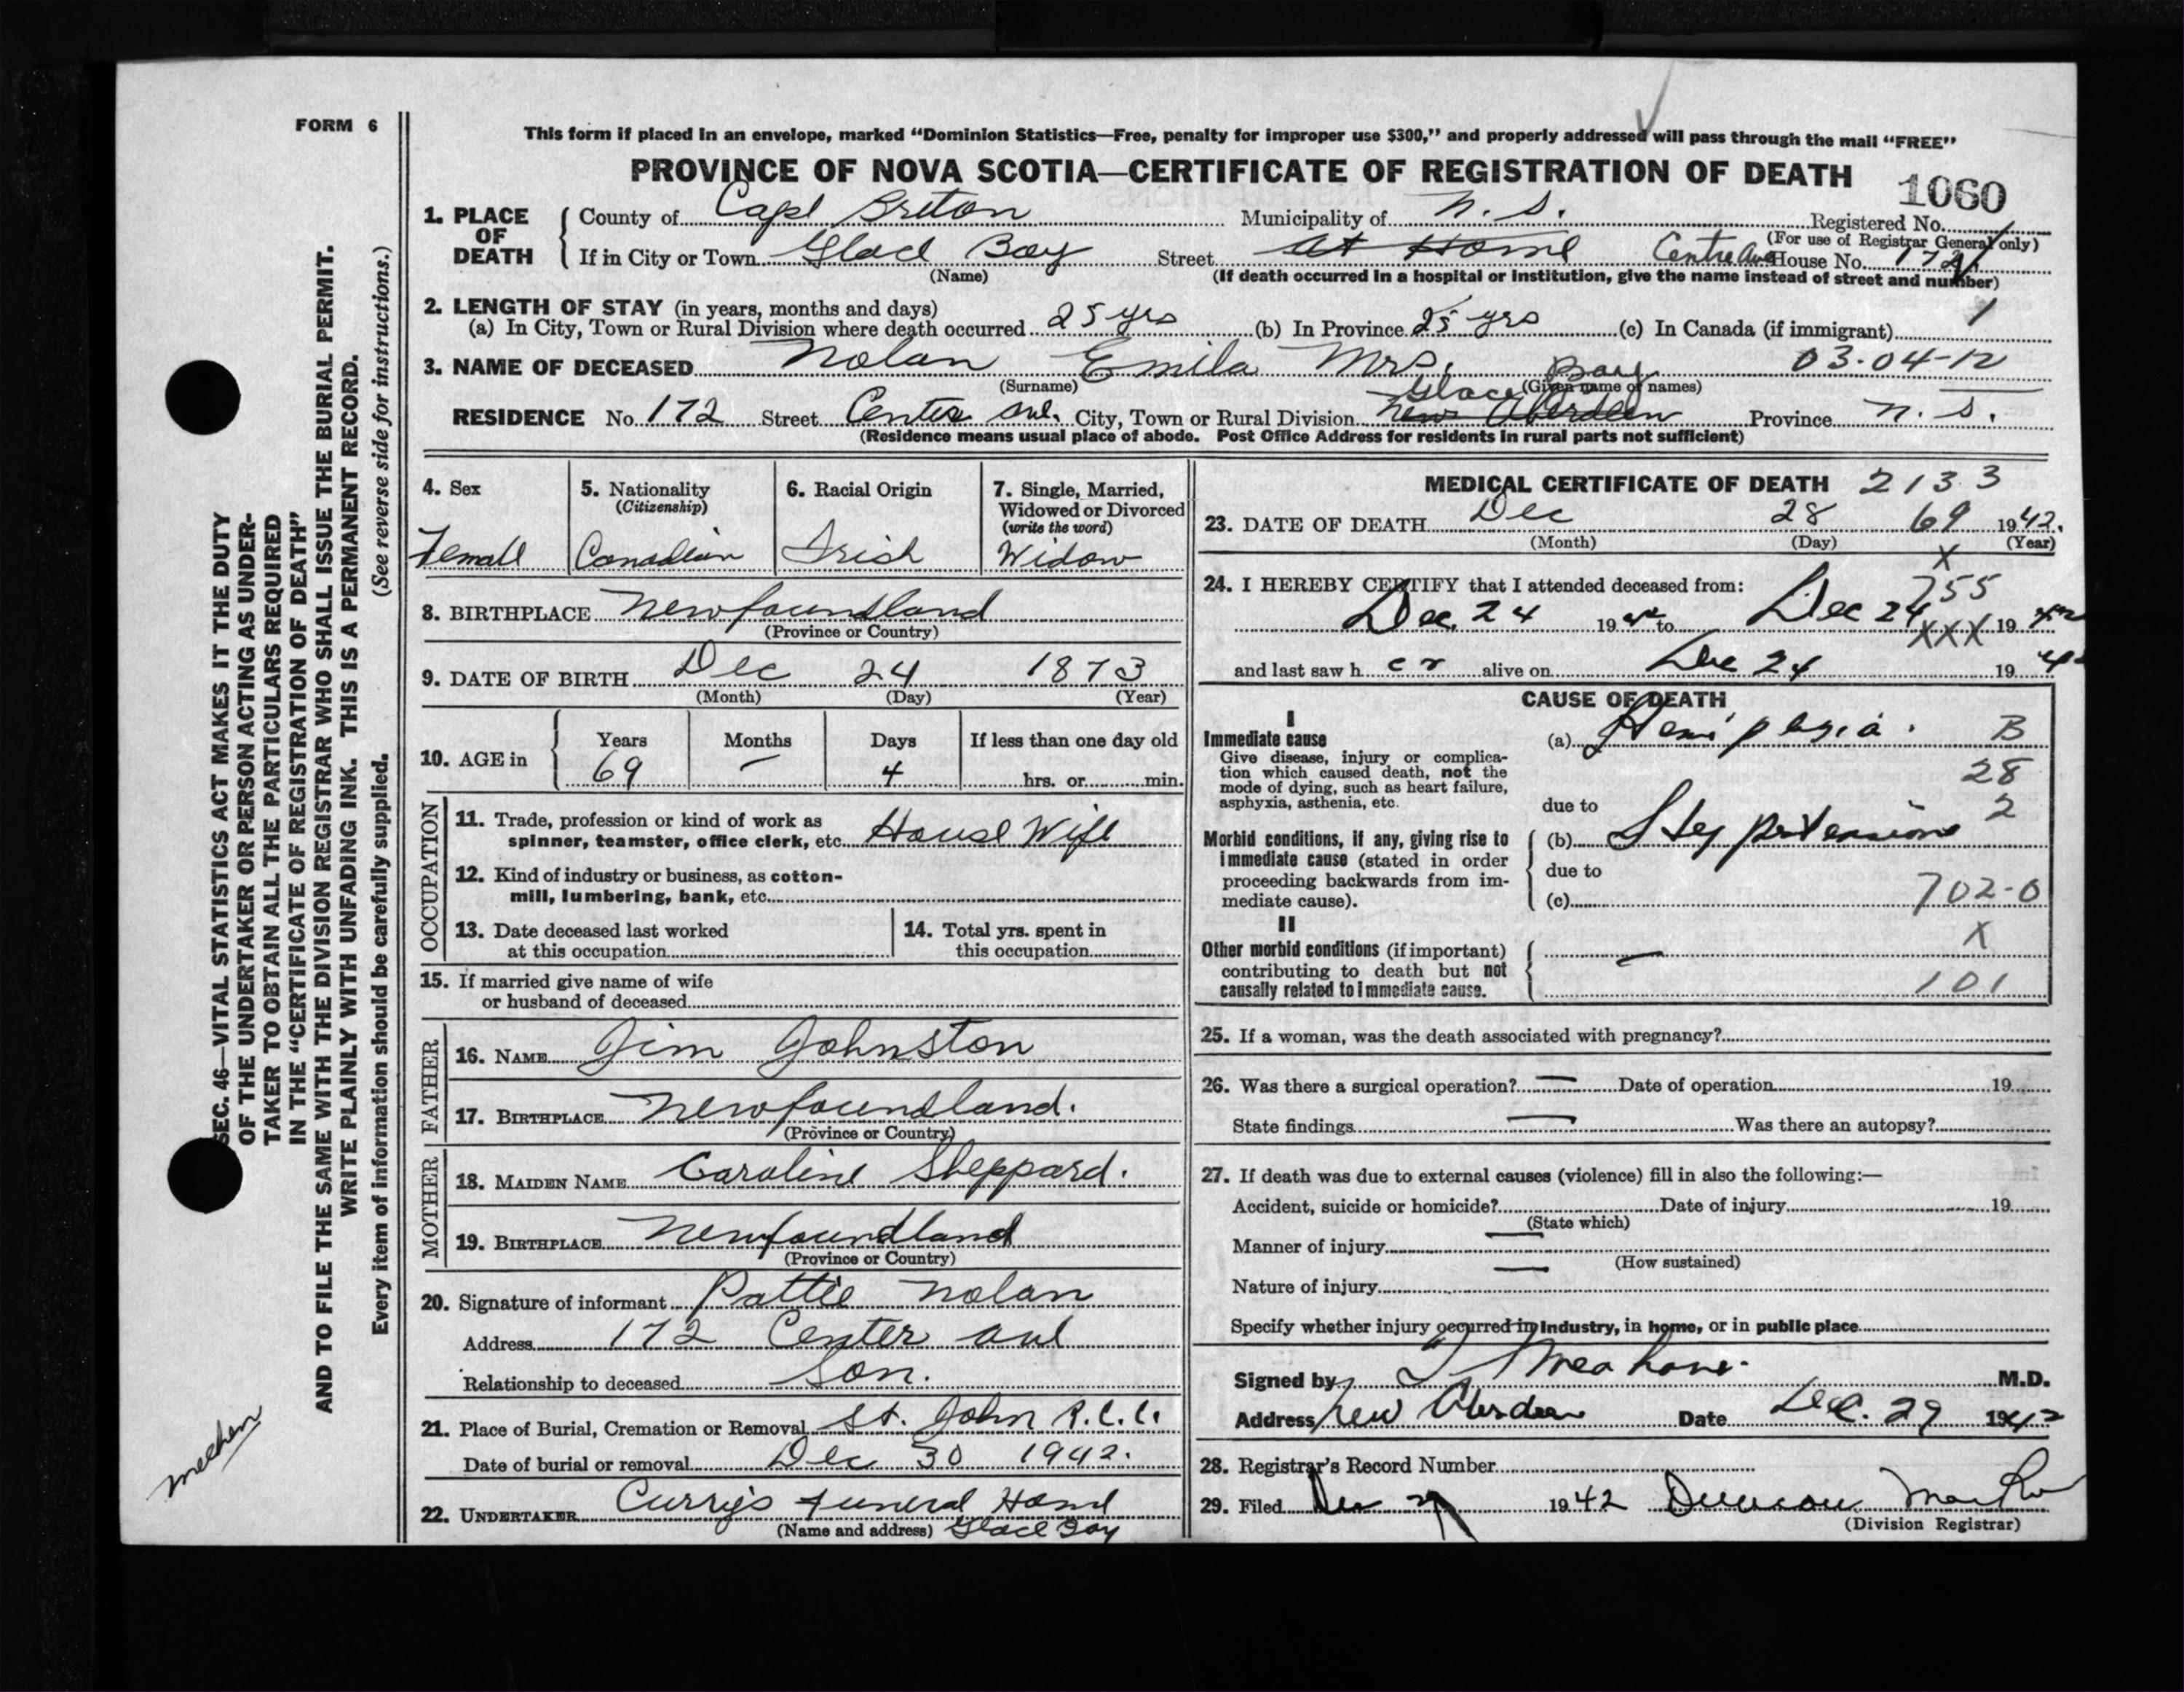 FORM 6
This form if placed in an envelope, marked “Dominion Statistics—Free, penalty for improper use $300,” and properly addressed will pass through the mail “FREE”
PROVINCE OF NOVA SCOTIA—CERTIFICATE OF REGISTRATION OF DEATH
1060
1. PLACE OF DEATH
County of Cape Breton Municipality of N. S. Registered No.
(For use of Registrar General only)
If in City or Town Glace Bay Street at Home Centre Ave House No. 172
(Name) (If death occurred in a hospital or institution, give the name instead of street and number)
2. LENGTH OF STAY (in years, months and days)
(a) In City, Town or Rural Division where death occurred 25 yrs (b) In Province 25 yrs (c) In Canada (if immigrant) 1
3. NAME OF DECEASED Nolan Emila Mrs. 03-04-12
(Surname) (Given name or names)
Glace Bay
RESIDENCE No. 172 Street Center ave. City, Town or Rural Division New Aberdeen Province N. S.
(Residence means usual place of abode. Post Office Address for residents in rural parts not sufficient)
4. Sex
Female
5. Nationality
(Citizenship)
Canadian
6. Racial Origin
Irish
7. Single, Married,
Widowed or Divorced
(write the word)
Widow
8. BIRTHPLACE Newfoundland
(Province or Country)
9. DATE OF BIRTH Dec 24 1873
(Month) (Day) (Year)
10. AGE in
Years Months Days If less than one day old
69 - 4 hrs. or min.
OCCUPATION
11. Trade, profession or kind of work as
spinner, teamster, office clerk, etc. House Wife
12. Kind of industry or business, as cotton-
mill, lumbering, bank, etc.
13. Date deceased last worked
at this occupation
14. Total yrs. spent in
this occupation
15. If married give name of wife
or husband of deceased
FATHER
16. NAME Jim Johnston
17. BIRTHPLACE Newfoundland.
(Province or Country)
MOTHER
18. MAIDEN NAME Caroline Sheppard.
19. BIRTHPLACE Newfoundland
(Province or Country)
20. Signature of informant Pattie Nolan
Address 172 Center ave
Relationship to deceased Son.
21. Place of Burial, Cremation or Removal St. John R.C.C.
Date of burial or removal Dec 30 1942.
22. UNDERTAKER Curry's Funeral Home
(Name and address) Glace Bay
MEDICAL CERTIFICATE OF DEATH 2133
23. DATE OF DEATH Dec 28 69 1942.
(Month) (Day) (Year)
X
24. I HEREBY CERTIFY that I attended deceased from:
755
Dec. 24 1942 to Dec 24 1942
XXX
and last saw h er alive on Dec 24 1942
CAUSE OF DEATH
I
Immediate cause
Give disease, injury or complica-
tion which caused death, not the
mode of dying, such as heart failure,
asphyxia, asthenia, etc.
(a) Hemiplegia. B
28
due to 2
Morbid conditions, if any, giving rise to
immediate cause (stated in order
proceeding backwards from im-
mediate cause).
(b) Hypertension
due to
(c) 702-0
II
X
Other morbid conditions (if important)
contributing to death but not
causally related to immediate cause.
101
25. If a woman, was the death associated with pregnancy?
26. Was there a surgical operation? — Date of operation 19
State findings — Was there an autopsy?
27. If death was due to external causes (violence) fill in also the following:—
Accident, suicide or homicide? Date of injury 19
(State which)
Manner of injury —
(How sustained)
Nature of injury —
Specify whether injury occurred in industry, in home, or in public place
Signed by M.D.
Address New Aberdeen Date Dec. 29 1942
28. Registrar's Record Number
29. Filed 1942 Duncan
(Division Registrar)
SEC. 46—VITAL STATISTICS ACT MAKES IT THE DUTY
OF THE UNDERTAKER OR PERSON ACTING AS UNDER-
TAKER TO OBTAIN ALL THE PARTICULARS REQUIRED
IN THE “CERTIFICATE OF REGISTRATION OF DEATH”
AND TO FILE THE SAME WITH THE DIVISION REGISTRAR WHO SHALL ISSUE THE BURIAL PERMIT.
WRITE PLAINLY WITH UNFADING INK. THIS IS A PERMANENT RECORD.
Every item of information should be carefully supplied. (See reverse side for instructions.)